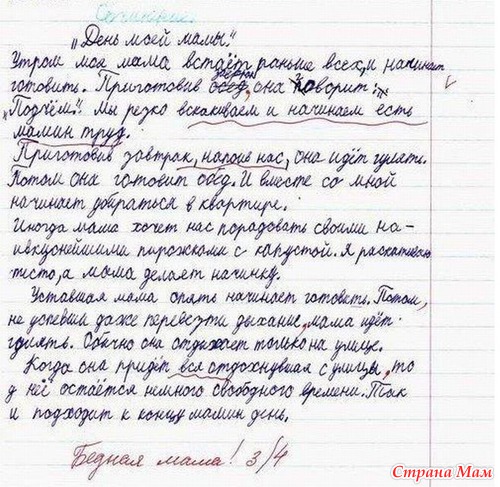 Сочинение.
„День моей мамы."
Утром моя мама встаёт раньше всех, и начинает
завтрак
готовить. Приготовив обед, она говорит:
„Подъём". Мы резко вскакиваем и начинаем есть
мамин труд.
Приготовив завтрак, напоив нас, она идёт гулять.
Потом она готовит обед. И вместе со мной
начинает убираться в квартире.
Иногда мама хочет нас порадовать своими на-
ивкуснейшими пирожками с капустой. Я раскатываю
тесто, а мама делает начинку.
Уставшая мама опять начинает готовить. Потом,
не успевши даже перевезти дыхание, мама идёт
гулять. Обычно она отдыхает только на улице.
Когда она придёт вся отдохнувшая с улицы, то
у неё остаётся немного свободного времени. Так
и подходит к концу мамин день.
Бедная мама! 3/4
Страна Мам